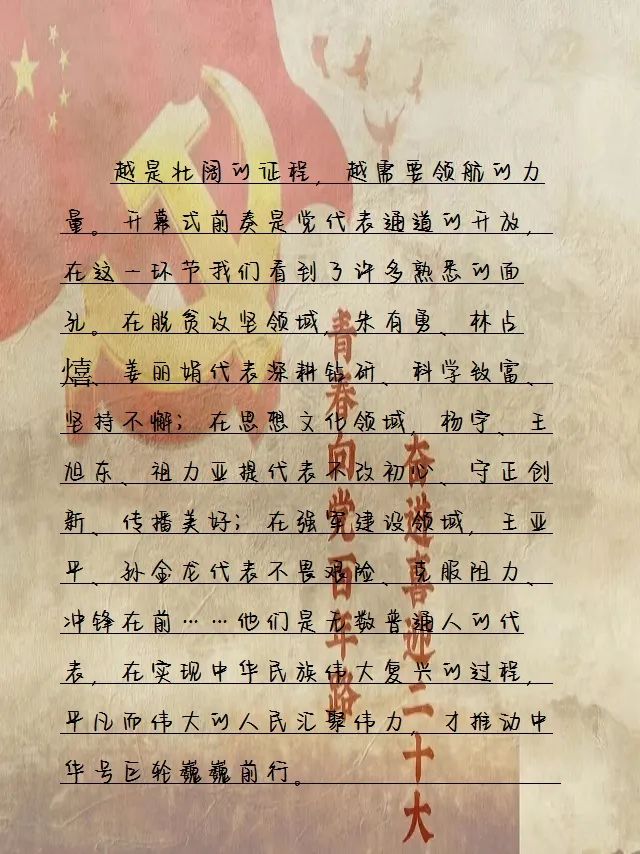 越是壮阔的征程，越需要领航的力
量。开幕式前奏是党代表通道的开放，
在这一环节我们看到了许多熟悉的面
孔。在脱贫攻坚领域，朱有勇、林占
熺、姜丽娟代表深耕钻研、科学致富、
坚持不懈；在思想文化领域，杨宁、王
旭东、祖力亚提代表不改初心、守正创
新、传播美好；在强军建设领域，王亚
平、孙金龙代表不畏艰险、克服阻力、
冲锋在前……他们是无数普通人的代
表，在实现中华民族伟大复兴的过程，
平凡而伟大的人民汇聚伟力，才推动中
华号巨轮巍巍前行。
青春向党百年路
奋进喜迎二十大